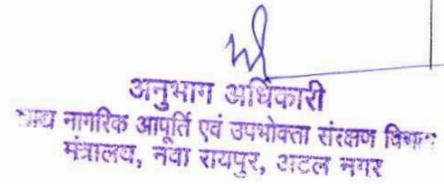 अनुभाग अधिकारी
खाद्य नागरिक आपूर्ति एवं उपभोक्ता संरक्षण विभाग
मंत्रालय, नवा रायपुर, अटल नगर